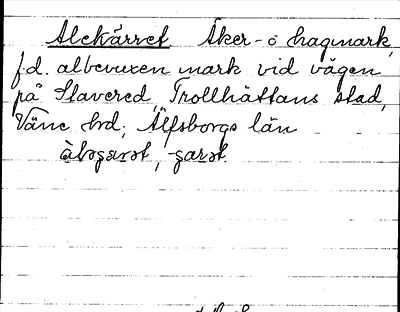 Alekärret Åker- o hagmark,
f.d. albevuxen mark vid vägen
på Stavered, Trollhättans stad,
Väne hd, Älfsborgs län